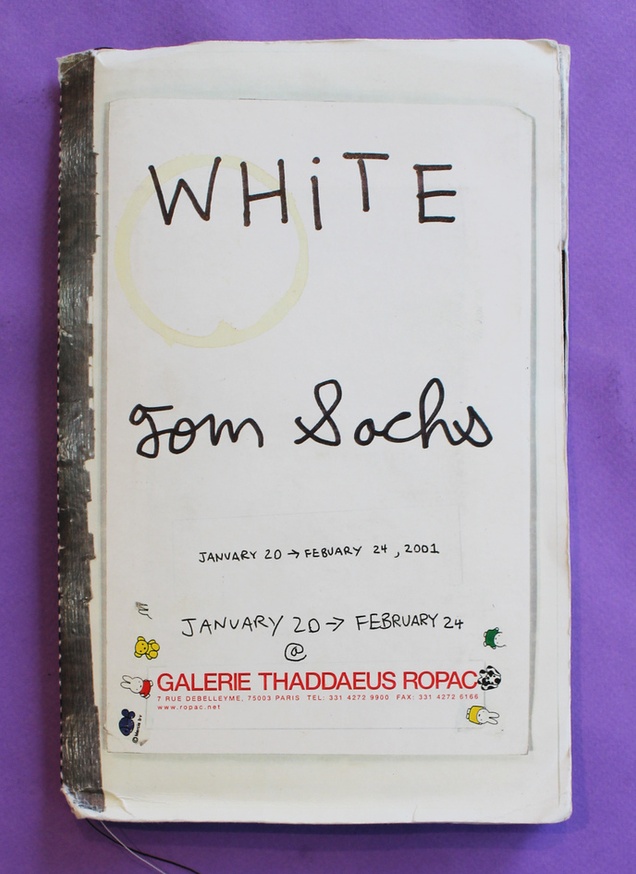 WHiTE
Tom Sachs
JANUARY 20 → FEBUARY 24, 2001
JANUARY 20 → FEBRUARY 24
@
GALERIE THADDAEUS ROPAC
7 RUE DEBELLEYME, 75003 PARIS TEL: 331 4272 9900 FAX: 331 4272 6166
www.ropac.net